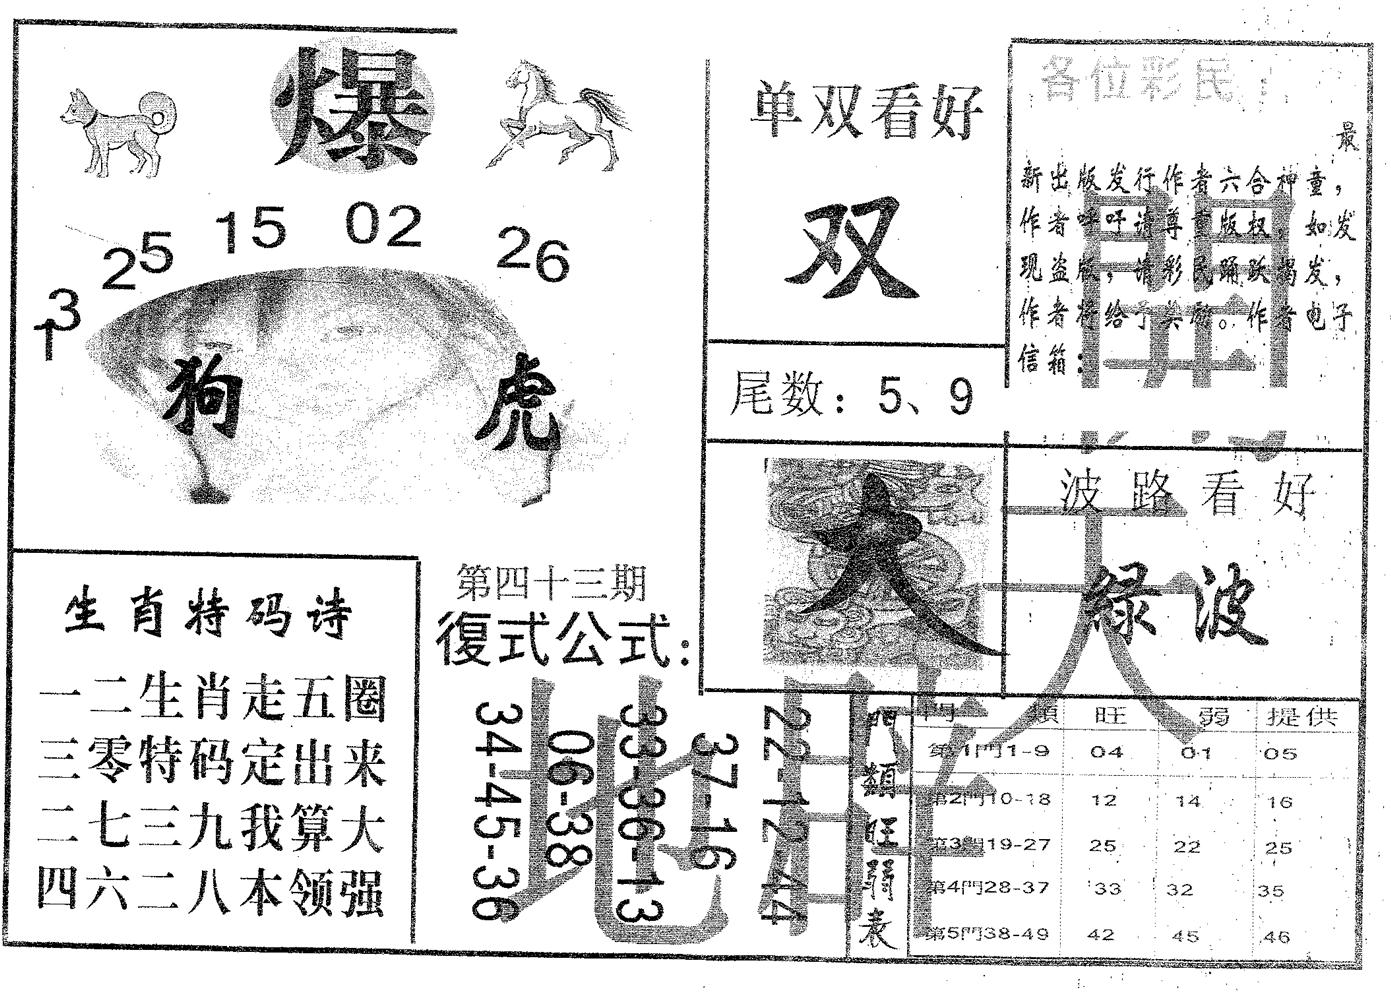 爆
13
25
15
02
26
狗
虎
单双看好
双
尾数：5、9
各位彩民：
最
新出版发行作者六合神童，
作者呼吁请尊重版权，如发
现盗版，请彩民踊跃揭发，
作者将给予奖励。作者电子
信箱：
大
波路看好
緑波
生肖特码诗
一二生肖走五圈
三零特码定出来
二七三九我算大
四六二八本领强
第四十三期
復式公式：
34-45-36
06-38
33-36-13
37-16
22-12-44
門類旺弱表
門類 旺 弱 提供
第1門1-9 04 01 05
第2門10-18 12 14 16
第3門19-27 25 22 25
第4門28-37 33 32 35
第5門38-49 42 45 46